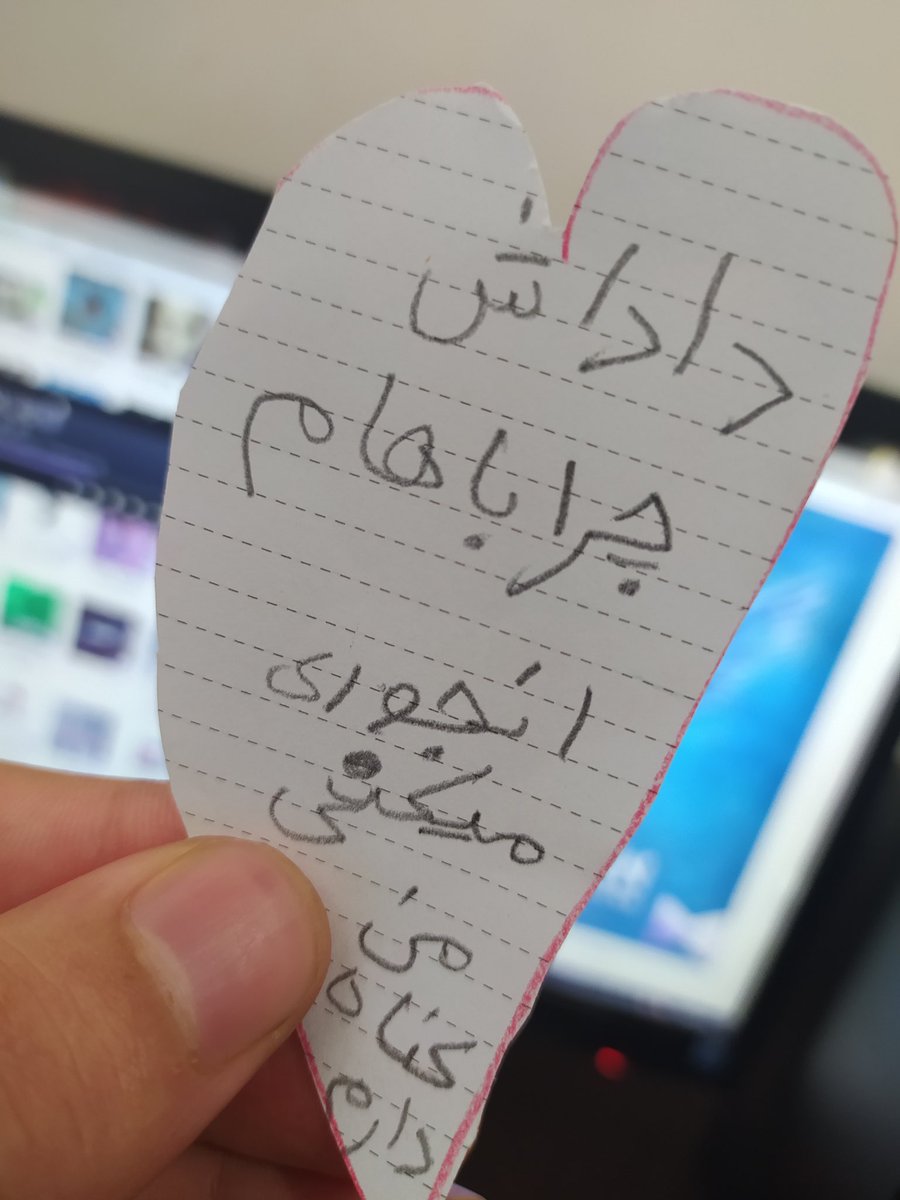 داداش
چرا باهام
انجوری
میکنی
من
کناه
دارم